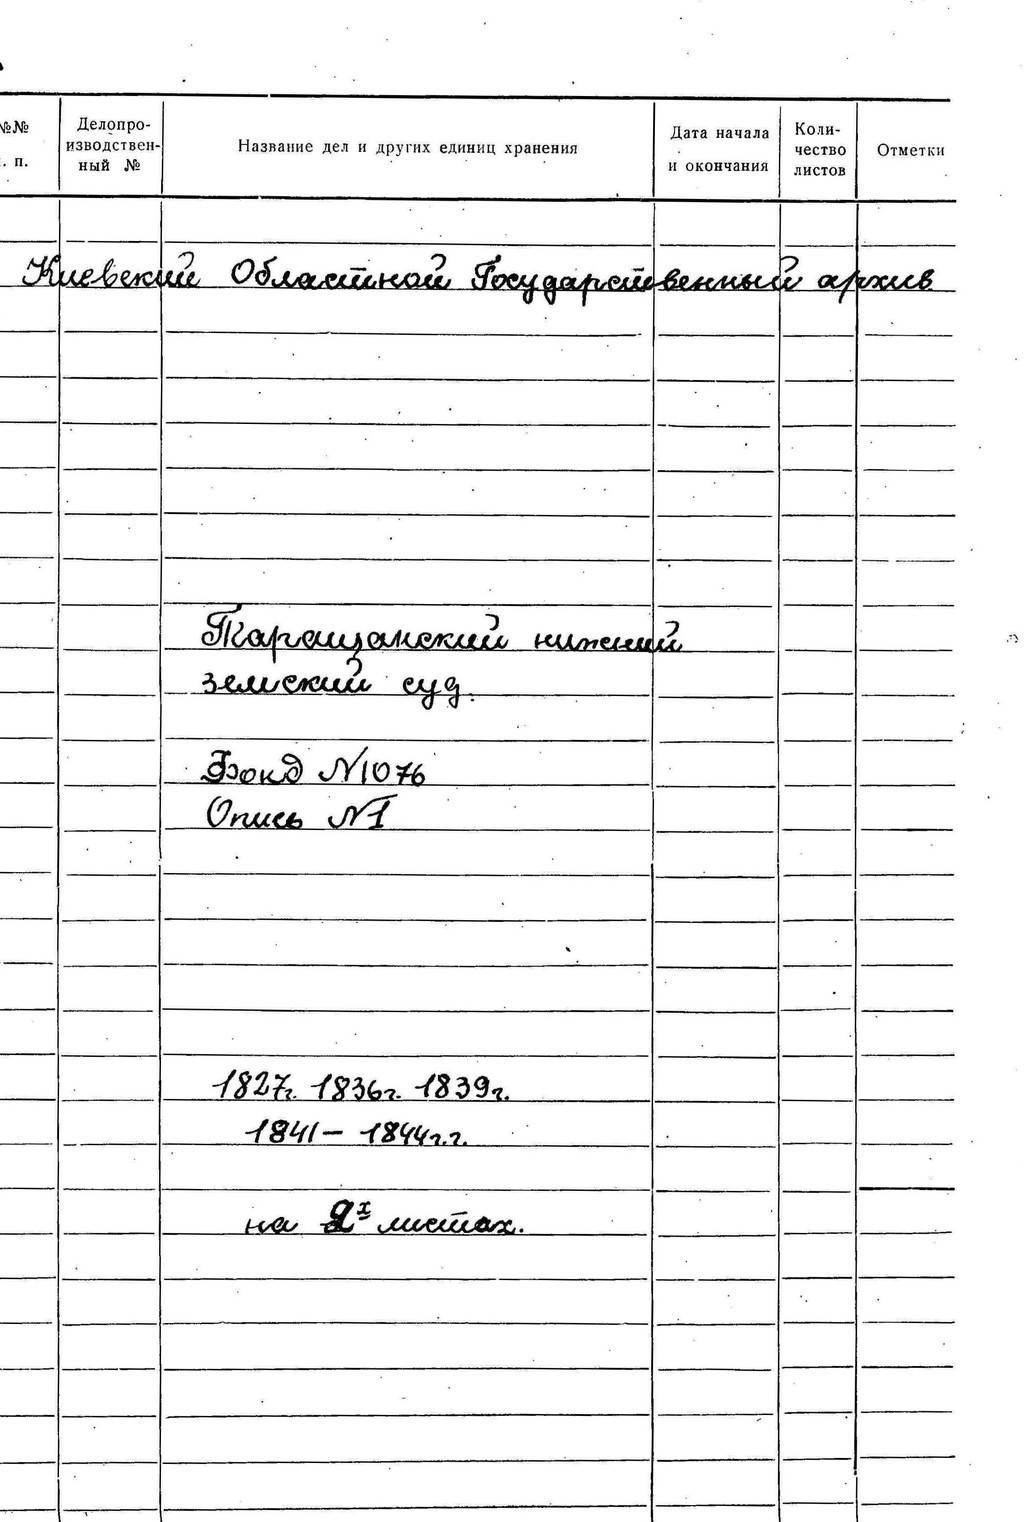 №№ Делопро- Название дел и других единиц хранения Дата начала Коли- Отметки
. п. изводствен- и окончания чество
ный № листов
Киевский Областной Государственный архив
Таращанский нижний
земский суд.
Фонд N1076
Опись N1
1827г. 1836г. 1839г.
1841 – 1844г.г.
на 2х листах.